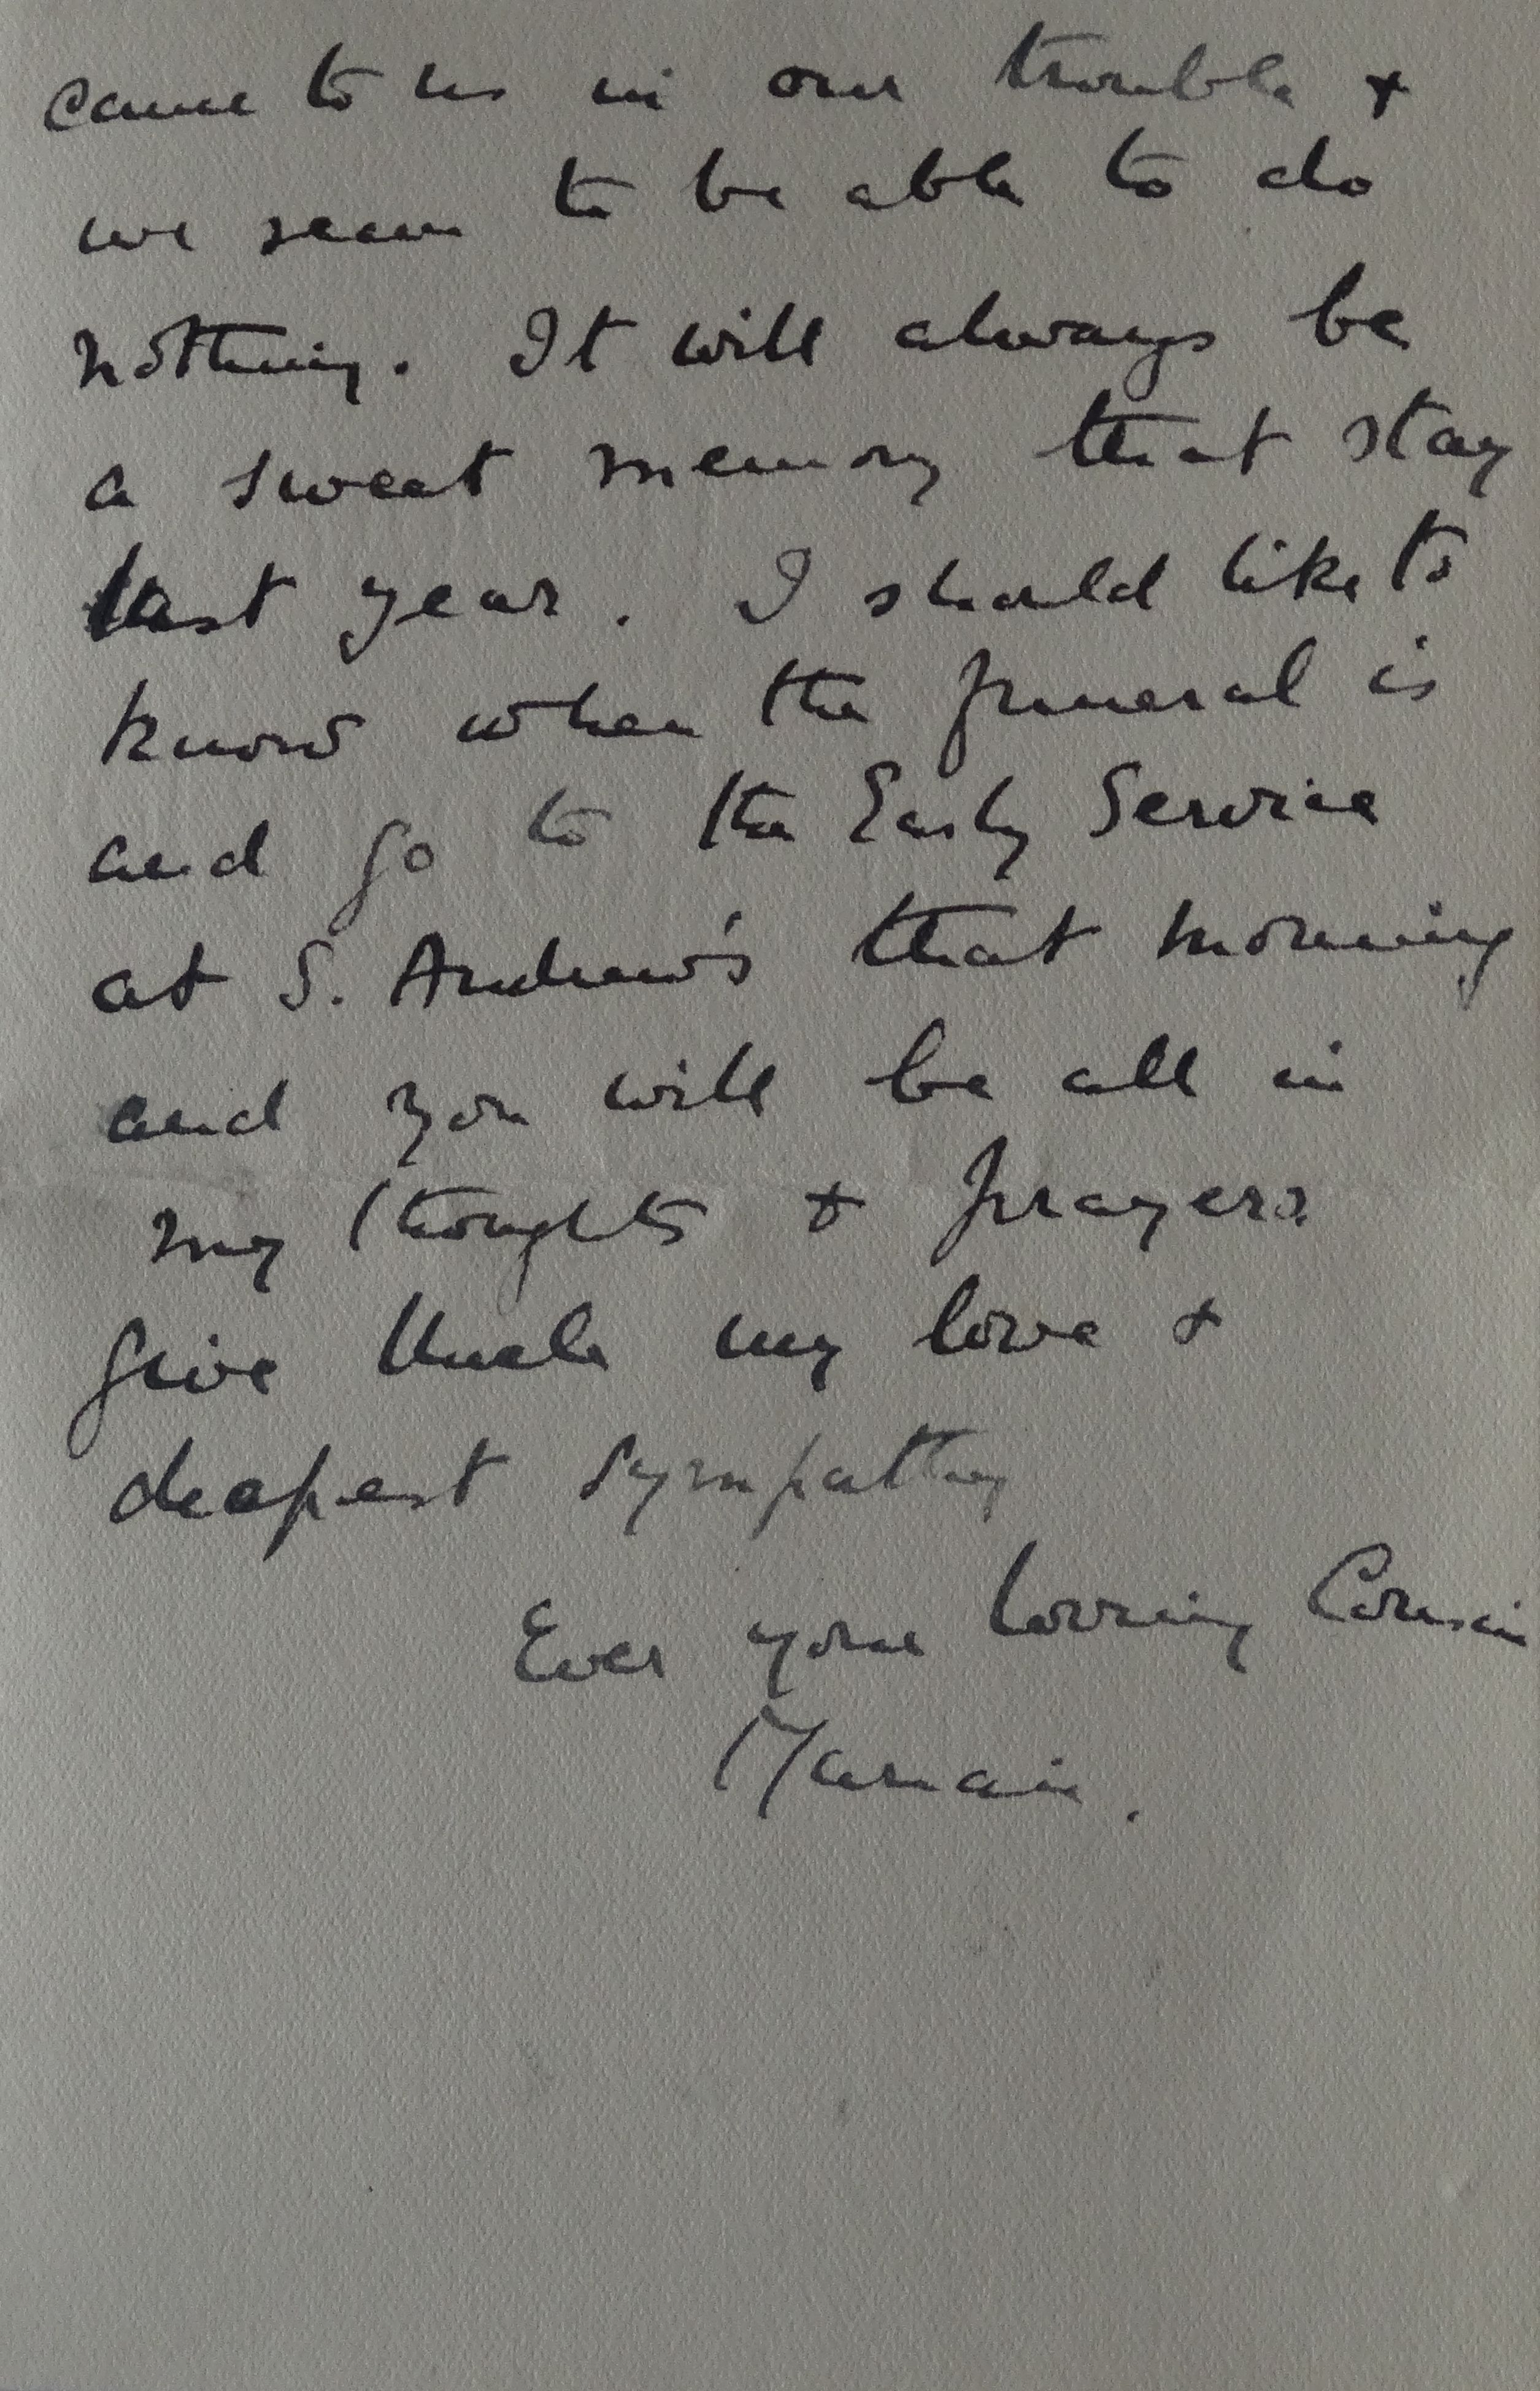 came to us in our trouble +
we seem to be able to do
nothing. It will always be
a sweet memory that stay
last year. I should like to
know when the funeral is
and go to the Early Service
at S. Andrew's that morning
and you will be all in
my thoughts + prayers.
Give Uncle my love +
deepest sympathy
Ever your loving Cousin